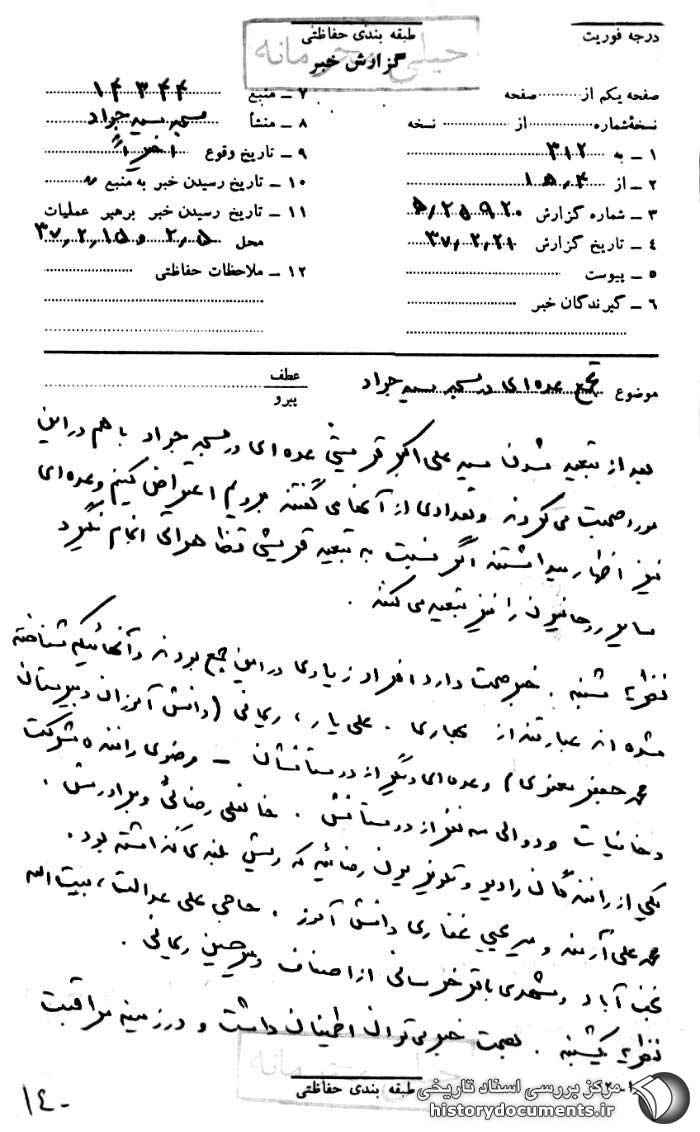 درجه فوریت
طبقه بندی حفاظتی
خیلی محرمانه
گزارش خبر
صفحه یکم از صفحه
نسخه شماره از نسخه
۱ ـ به ۳۱۲
۲ ـ از ۱۵,۴
۳ ـ شماره گزارش
۴ ـ تاریخ گزارش ۳۷,۲,۲۱
۵ ـ پیوست
۶ ـ گیرندگان خبر
۷ ـ منبع ۱۴۳۴۴
۸ ـ منشأ مسجد سید جواد
۹ ـ تاریخ وقوع اخیراً
۱۰ ـ تاریخ رسیدن خبر به منبع
۱۱ ـ تاریخ رسیدن خبر برهبر عملیات
محل ۲,۵ و ۳۷,۲,۱۵
۱۲ ـ ملاحظات حفاظتی
موضوع تجمع عده‌ای در مسجد سید جواد
عطف
پیرو
بعد از تبعید شدن سید علی اکبر قریشی عده‌ای در مسجد جواد با هم در این
مورد صحبت می‌کردند و تعدادی از آنها می‌گفتند برویم اعتراض کنیم و عده‌ای
نیز اظهار میداشتند اگر نسبت به تبعید قریشی تظاهراتی انجام نگیرد
سایر روحانیون را نیز تبعید می‌کنند .
نظریه شنبه . خبر صحت دارد افراد زیادی در این جمع بودند و آنهائیکه شناخته
شده اند عبارتند از نجاری . علی یار ، ریحانی (دانش آموزان دبیرستان
محمد جعفر) و عده‌ای دیگر از دوستانشان ـ مرتضوی راننده شرکت
دخانیات و دو الی سه نفر از دوستانش . خانعلی رضائی و برادرش .
یکی از رانندگان رادیو و تلویزیون رضائیه که ریش بلندی گذاشته بود .
محمد علی و میر یحیی غفاری دانش آموز . حاجی علی عدالت ، بیت اله
نجف آباد و مشهدی باقر خراسانی از اصناف و میر حسین ریحانی .
نظریه یکشنبه . بصحت خبر می‌توان اطمینان داشت و در زمینه مراقبت
طبقه بندی حفاظتی
خیلی محرمانه
۱۴۰
مرکز بررسی اسناد تاریخی
historydocuments.ir